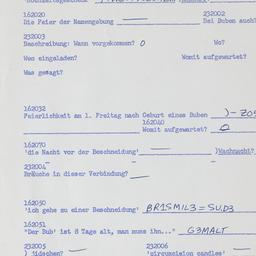 162020 232002
Die Feier der Namengebung Bei Buben auch?
232003
Beschreibung: Wann vorgekommen? 0 Wo?
Wen eingeladen? Womit aufgewartet?
Was gesagt?
162032
Feierlichkeit am 1. Freitag nach Geburt eines Buben
162040
Womit aufgewartet?
162070
'die Nacht vor der Beschneidung' )Wachnacht?
232004
Bräuche in dieser Verbindung?
162050
'ich gehe zu einer Beschneidung' BR1SMIL3=SU.D3
162051
"Der Bub' ist 8 Tage alt, man muss ihn..." G3MALT
232005 232006
) jidschen? 'circumcision candles'